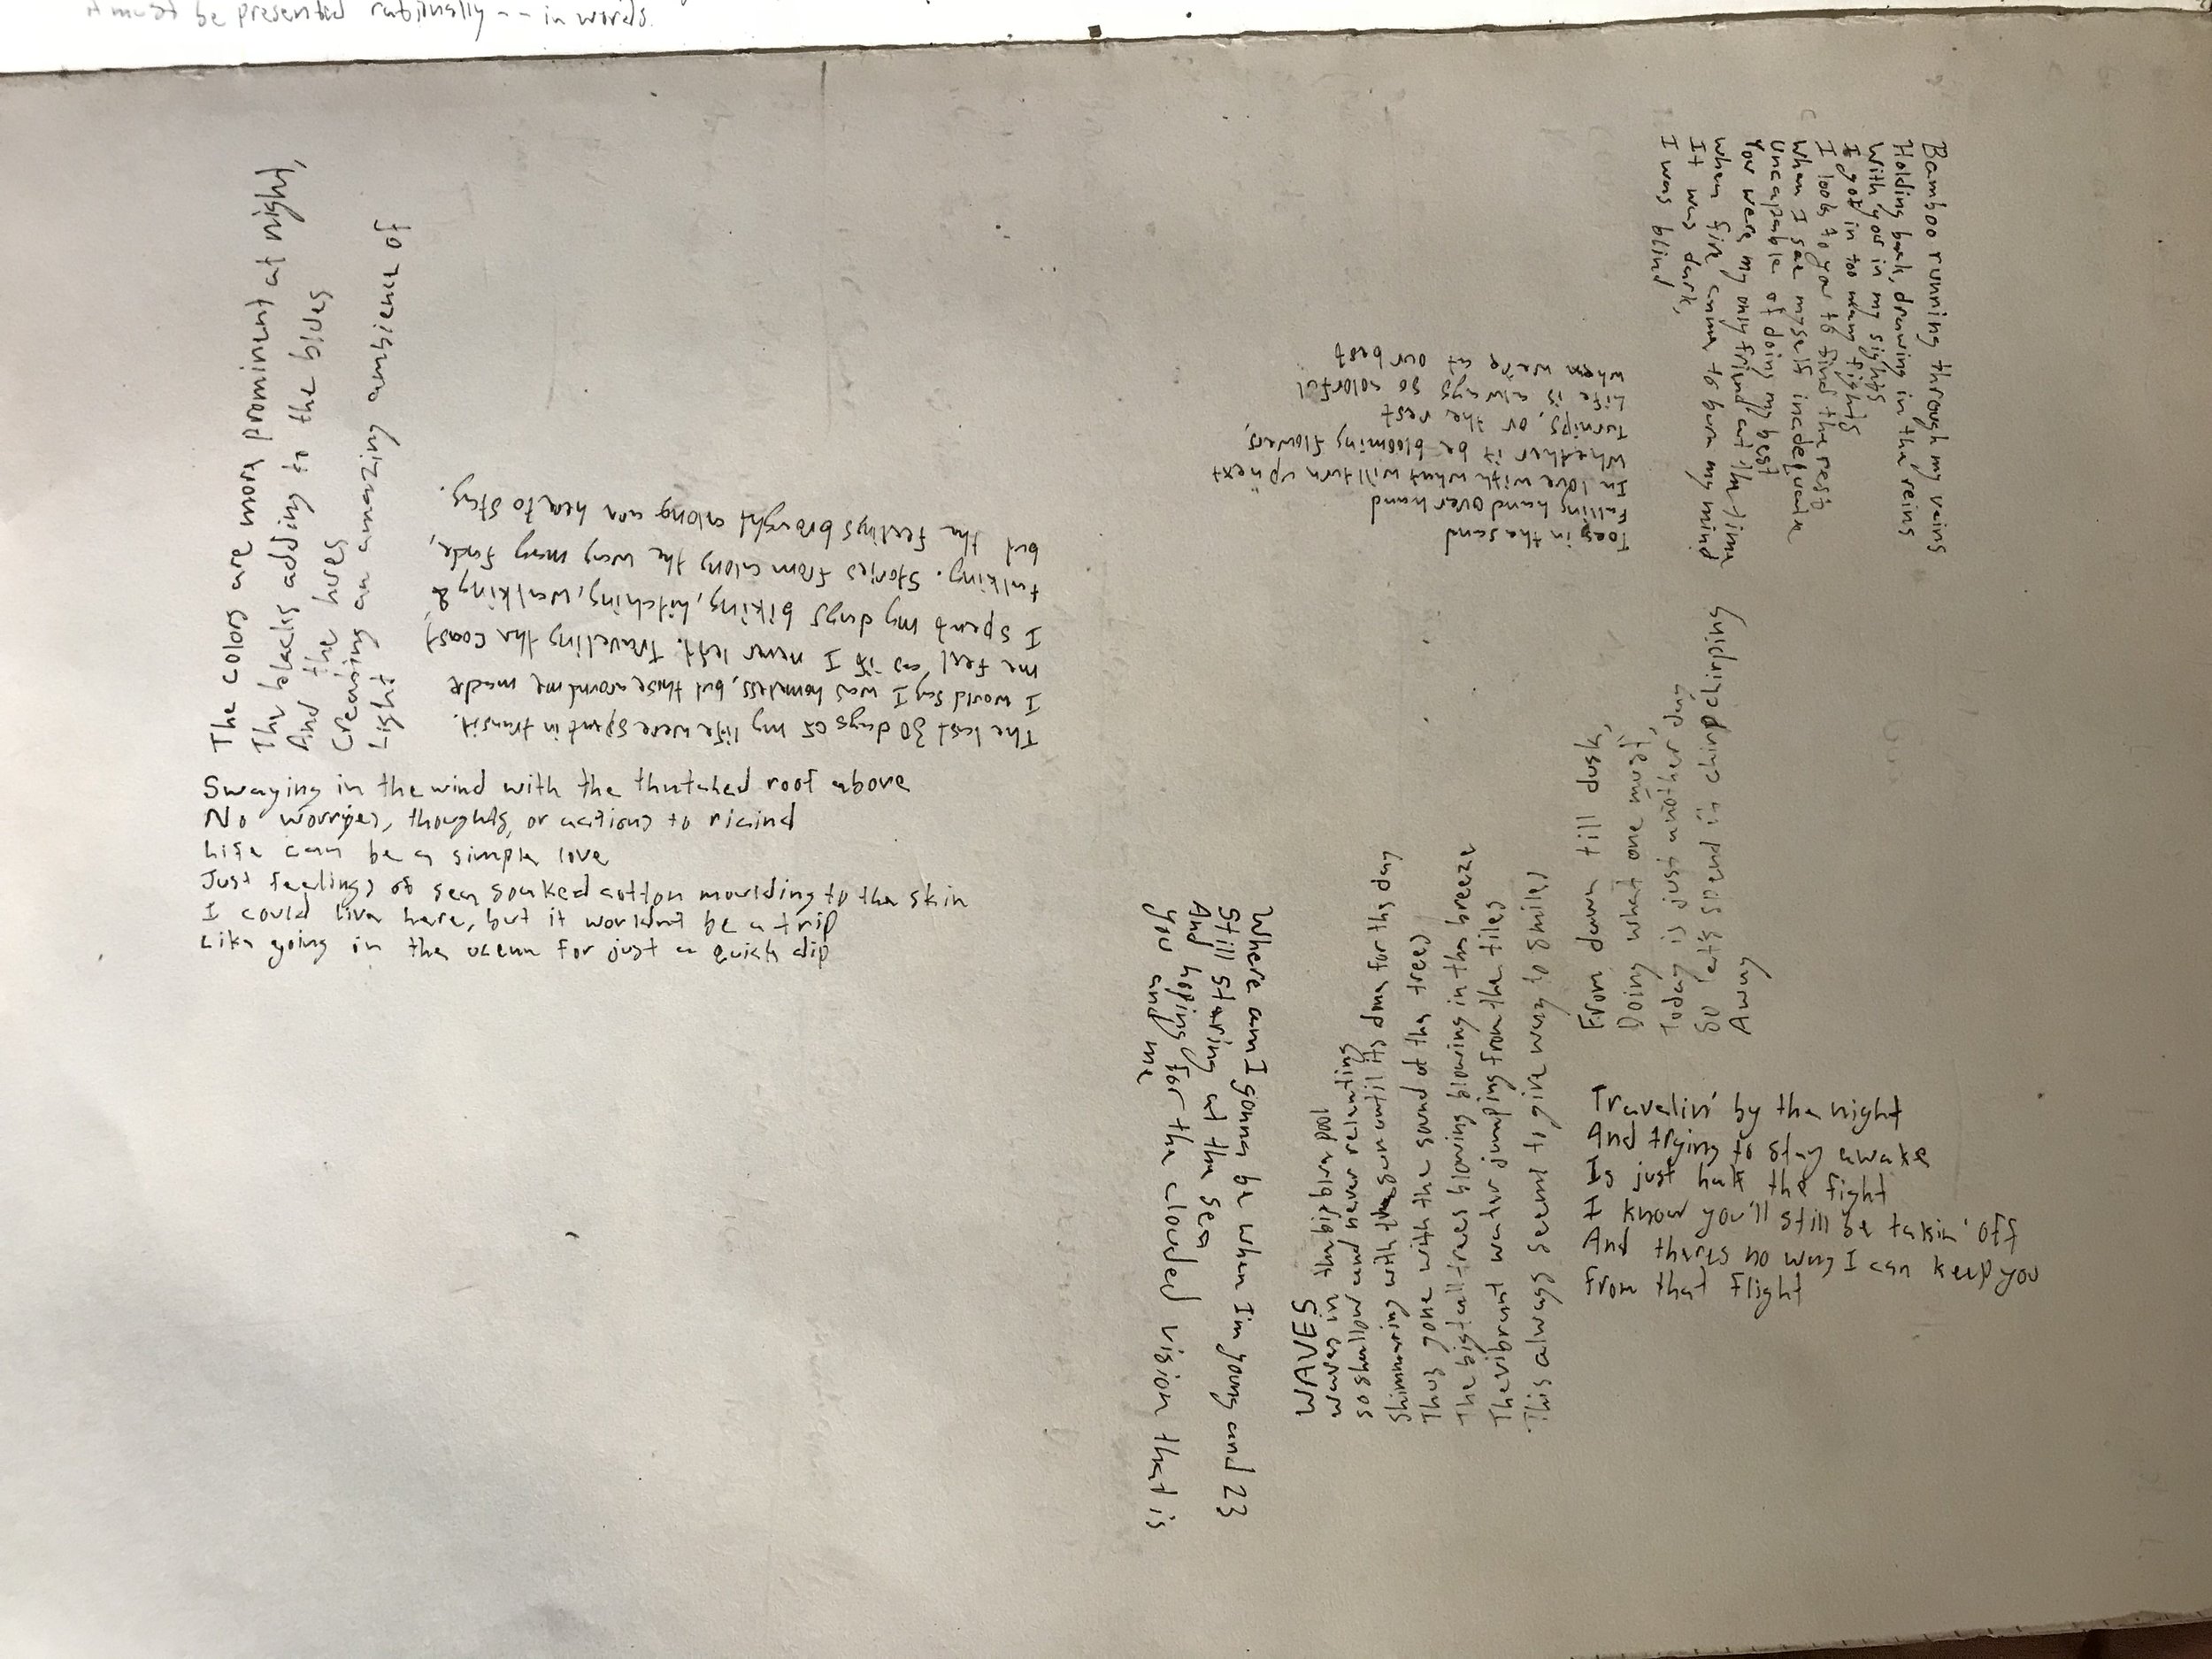 it must be presented rationally -- in words.
The colors are more prominent at night,
The blacks adding to the blues
And the hues
Creating an amazing ambience of
Light
The last 30 days of my life were spent in transit.
I would say I was homeless, but those around me made
me feel as if I never left. Traveling the coast,
I spent my days biking, hitching, walking &
talking. Stories from along the way many fade,
but the feelings brought along are here to stay.
Swaying in the wind with the thatched roof above
No worries, thoughts, or actions to
Life can be a simple love
Just feelings of sea soaked cotton moulding to the skin
I could live here, but it wouldnt be a trip
Like going in the ocean for just a quick dip
Bamboo running through my veins
Holding back, drawing in the reins
With you in my sights
I got in too many fights
I look to you to find the rest
When I see myself inadequate
Uncapable of doing my best
You were my only friend at the time
When fire came to burn my mind
It was dark,
I was blind
Toes in the sand
Falling hand over hand
In love with what will turn up next
Whether it be blooming flowers,
Turnips, or the rest
Life is always so colorful
When we're at our best
From dawn till dusk,
Doing what one must,
Today is just another day
So let's spend it chinpchinping
Away
Where am I gonna be when I'm young and 23
Still staring at the sea
And hoping for the clouded vision that is
you and me
WAVES
waves in the big blue pool
so shallow and never relenting
Shimmering with the sun until its done for the day
Thus gone with the sound of the trees
The big tall trees blowing blowing in the breeze
The vibrant water jumping from the tiles
This always seems to give way to smiles
Travelin' by the night
And trying to stay awake
Is just half the fight
I know you'll still be takin' off
And theres no way I can keep you
From that flight